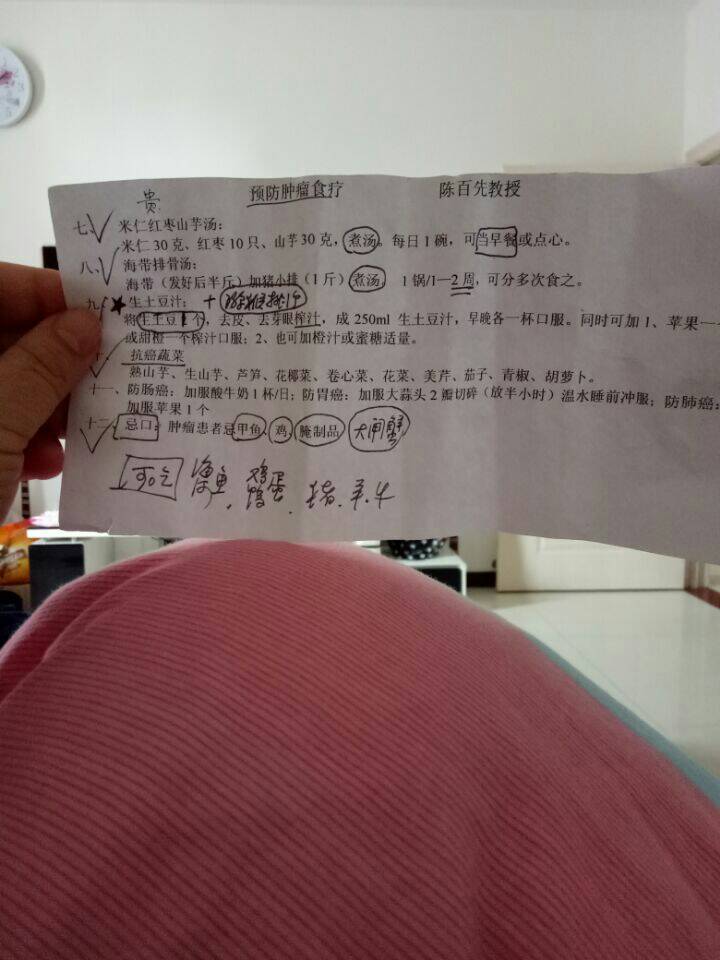 贵
预防肿瘤食疗 陈百先教授
七、米仁红枣山芋汤：
米仁 30 克、红枣 10 只、山芋 30 克，煮汤。每日 1 碗，可当早餐或点心。
八、海带排骨汤：
海带（发好后半斤）加猪小排（1 斤）煮汤， 1 锅/1—2 周，可分多次食之。
九、★生土豆汁： +
将生土豆1个，去皮、去芽眼榨汁，成 250ml 生土豆汁，早晚各一杯口服。同时可加 1、苹果一
或甜橙一个榨汁口服；2、也可加橙汁或蜜糖适量。
十、抗癌蔬菜
熟山芋、生山芋、芦笋、花椰菜、卷心菜、花菜、美芹、茄子、青椒、胡萝卜。
十一、防肠癌：加服酸牛奶 1 杯/日；防胃癌：加服大蒜头 2 瓣切碎（放半小时）温水睡前冲服；防肺癌：
加服苹果 1 个
十二、忌口：肿瘤患者忌甲鱼、鸡、腌制品 大闸蟹
可吃 海鱼， 鸡鸭蛋． 猪．羊．牛